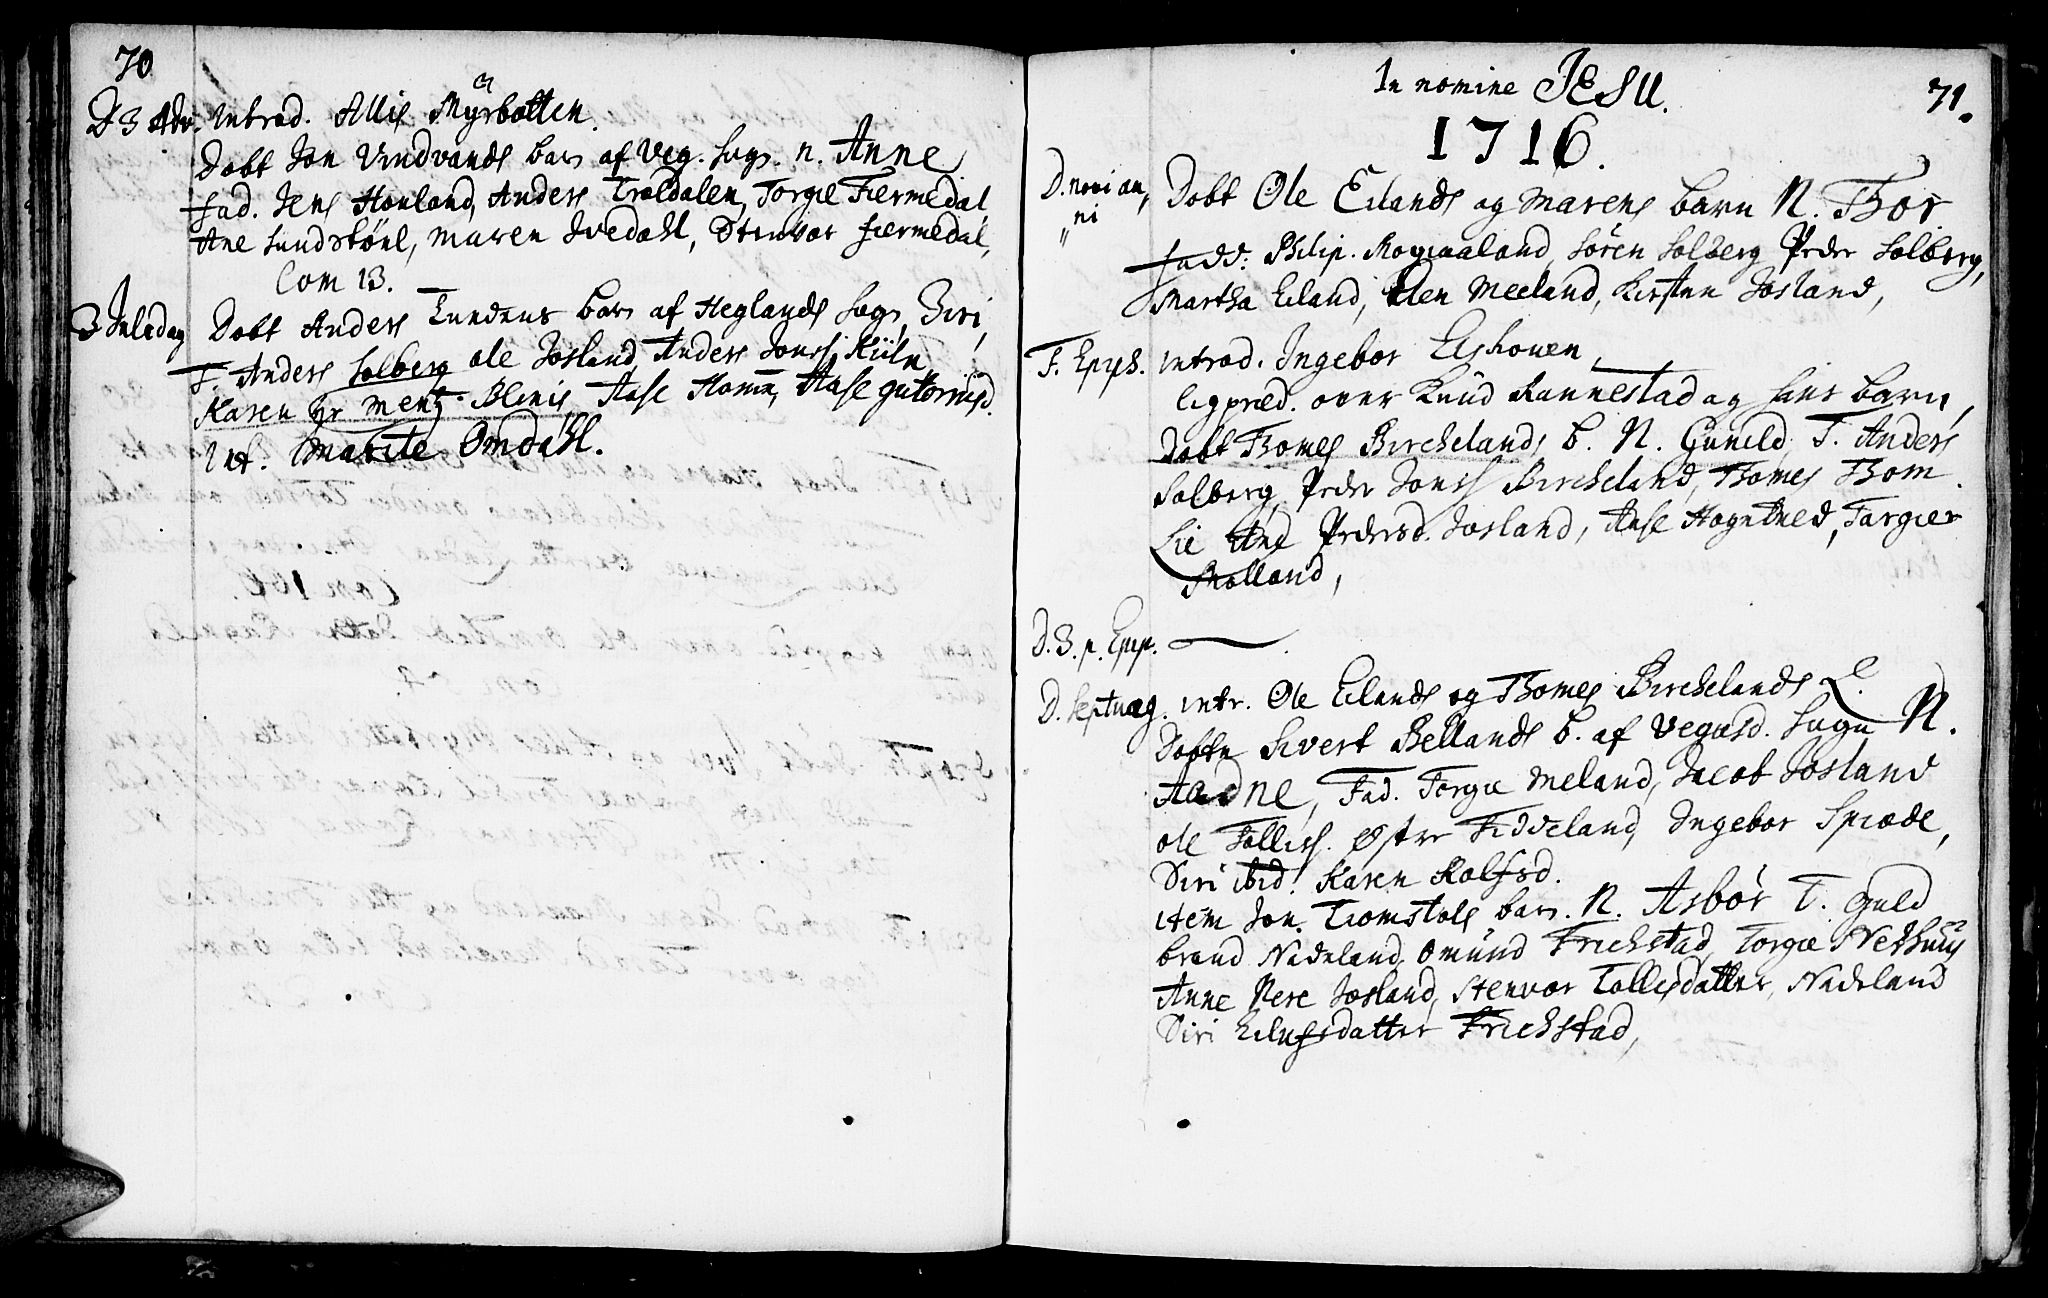 70
D 3 Adv. Introd. Allis Myrbotten.
Døbt Jon Vindvands barn af Veg. sogn. n. Anne
fad. Jens Honland, Anders Traldalen, Torgie Fiermedal,
Ane Sundstönl, Maren Ivedahl, Stenvor fiermedal,
Com 13.
3 Juledag Døbt Anders Lundens barn af Heglands sogn, Siri,
F. Anders Solberg ole Josland, Anders Jonss. Kiiln
Karen hr Mentz Blenis Aase Homme, Aase gutormsd.
Int. Marite Omdahl.
In nomine JESU.
71.
1716.
D. novi an,
ni
Døbt Ole Eilands og Marens barn N. Thor
fadd: Philip. Rogiaaland, Sören Solberg Peder Solberg,
Martha Eiland, Elen Meeland, Kirsten Josland,
F. Epph. introd. Ingebor Elshouen,
ligpræd. over Knud Rannestad og hans barn,
Døbt Thomes Bircheland, b. N. Gunild, F. Anders
Solberg, Peder Jonss. Bircheland, Thomes Thom.
Lie Ane Pedersd. Josland, Aase Hognæned, Targier
Mølland,
D. 3. p. Epp.
D. septuag. intr. Ole Eilands og Thomes Birchelands
Døbte Sivert Bellands b. af Vegusd. sogn N.
Aadne, Fad. Torgie Meland, Jacob Josland
ole Tolliss. Østre Fidieland, Ingebor Spiæde,
Siri ibid. Karen Rolfsd.
item Jon Tromstøls barn. N. Asbör F. Guld
brand Nadeland, Omünd Frichstad, Torgie Nedhuus
Anne Nere Josland, Stenvor Tollesdatter, Nadeland
Siri Eilufsdatter Frichstad,